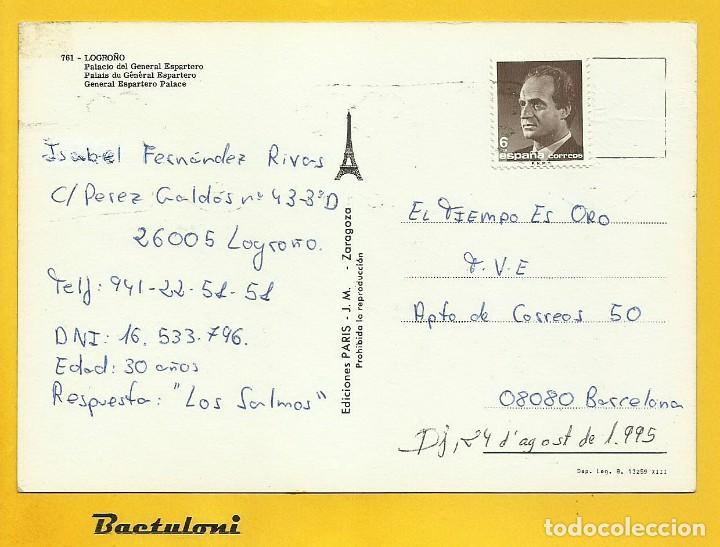 761 - LOGROÑO
Palacio del General Espartero
Palais du Général Espartero
General Espartero Palace
Isabel Fernández Rivas
C/ Perez Galdós nº 43-3ºD
26005 Logroño.
Telf: 941-22-51-51
DNI: 16.533.796.
Edad: 30 años
Respuesta: "Los Salmos"
Ediciones PARIS - J. M. - Zaragoza
Prohibida la reproducción
6
españa correos
El Tiempo Es Oro
T.V.E
Apto de Correos 50
08080 Barcelona
Dj, 24 d'agost de 1.995
Dep. Leg. B. 13259 XIII
Bactuloni
todocoleccion